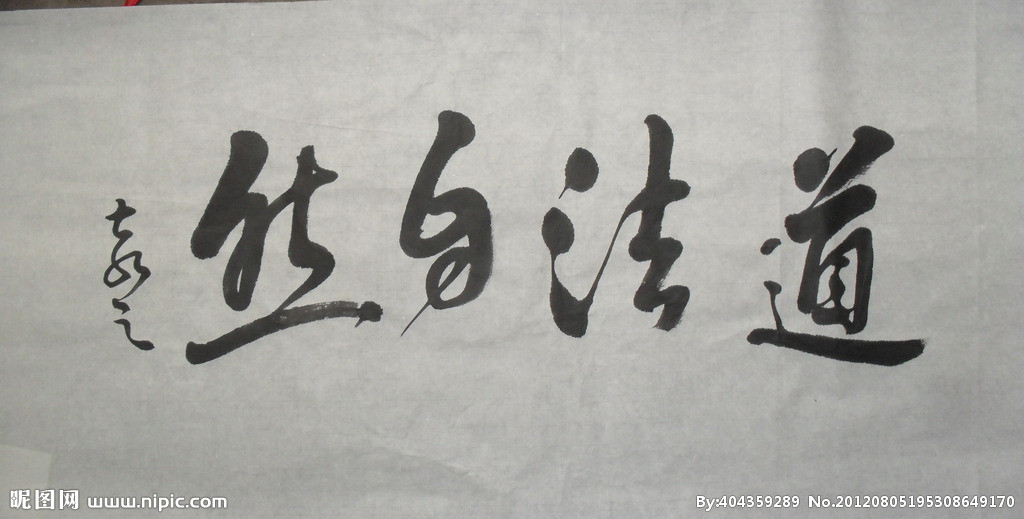 道法自然
昵图网 www.nipic.com
By:404359289 No.20120805195308649170